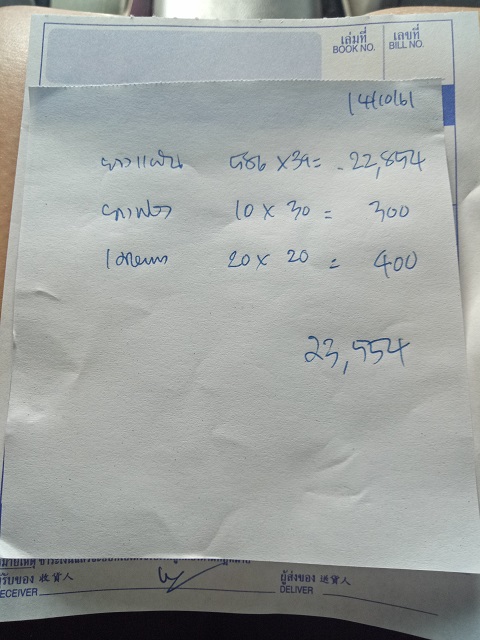 เล่มที่ เลขที่
BOOK NO. BILL NO.
14/10/61
ยางแผ่น 586 x 39 = 22,854
10 x 30 = 300
20 x 20 = 400
23,554
ผู้ส่งของ 送貨人
รับของ 收貨人
ECEIVER DELIVER